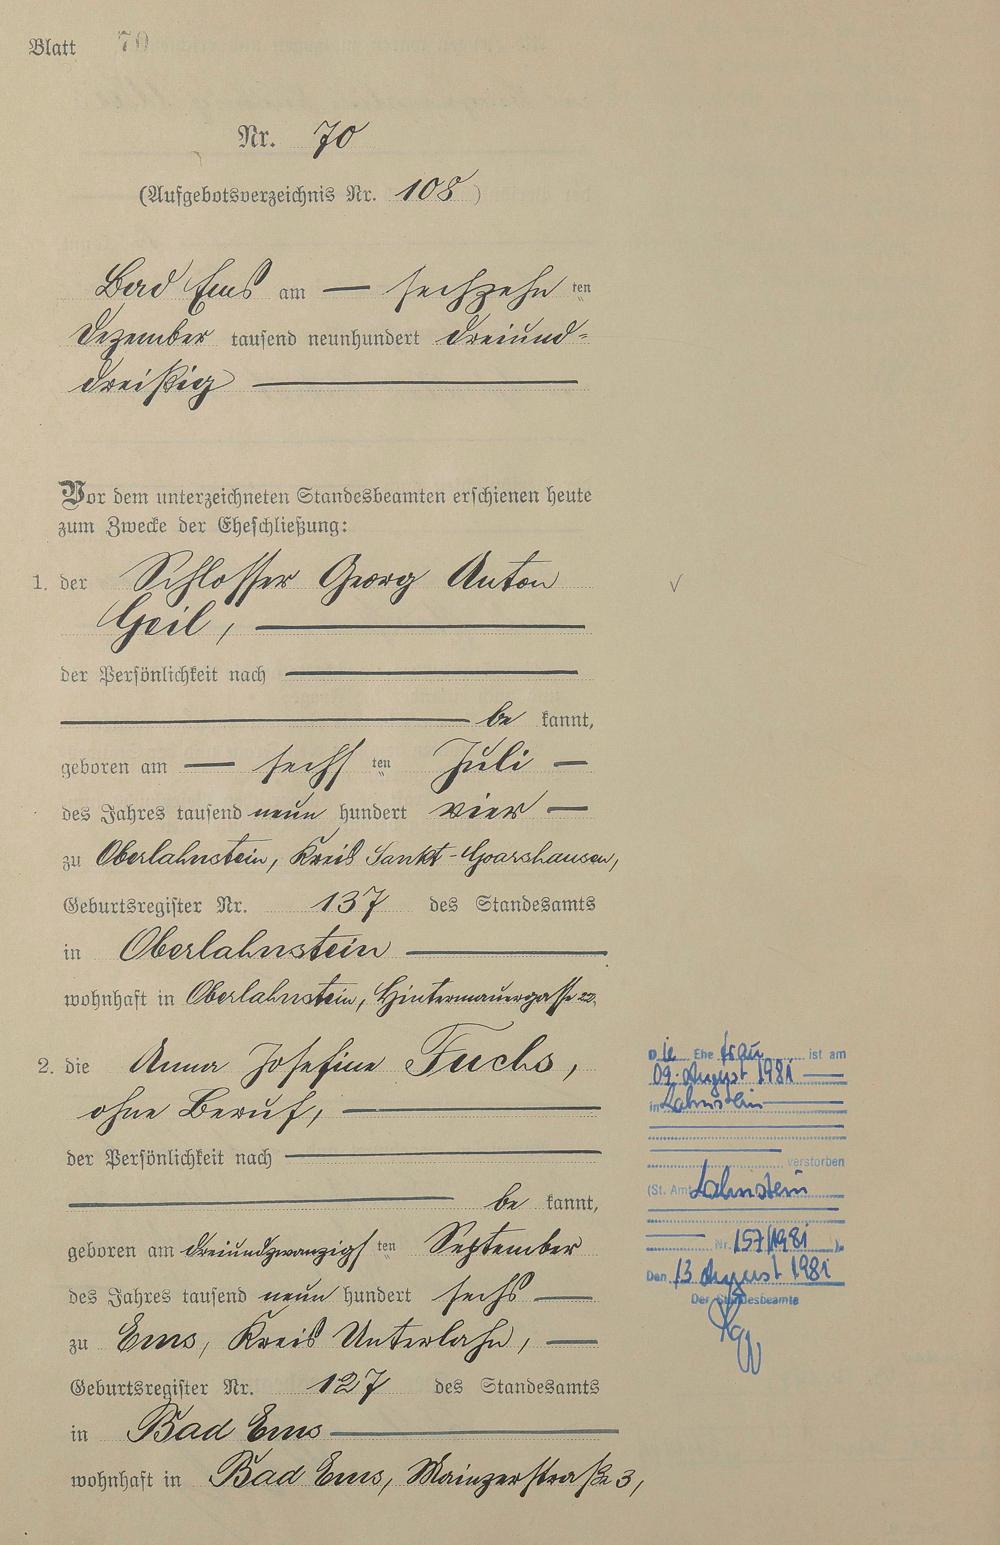 Blatt 70
Nr. 70
(Aufgebotsverzeichnis Nr. 108)
Bad Ems am — sechzehn ten
Dezember tausend neunhundert dreiund-
dreißig —
Vor dem unterzeichneten Standesbeamten erschienen heute
zum Zwecke der Eheschließung:
1. der Schlosser Georg Anton
Geil, —
der Persönlichkeit nach —
— be kannt,
geboren am — sechs ten Juli —
des Jahres tausend neun hundert vier —
zu Oberlahnstein, Kreis Sankt-Goarshausen,
Geburtsregister Nr. 137 des Standesamts
in Oberlahnstein —
wohnhaft in Oberlahnstein, Hintermauergasse 22.
2. die Anna Josefine Fuchs,
ohne Beruf, —
der Persönlichkeit nach —
— be kannt,
geboren am dreiundzwanzigs ten September
des Jahres tausend neun hundert sechs —
zu Ems, Kreis Unterlahn, —
Geburtsregister Nr. 127 des Standesamts
in Bad Ems —
wohnhaft in Bad Ems, Mainzerstraße 3,
Die Ehefrau ist am
09. August 1981 —
in Lahnstein —
verstorben
(St. Amt Lahnstein
— Nr. 157/1981 ).
Den 13 August 1981
Der Standesbeamte